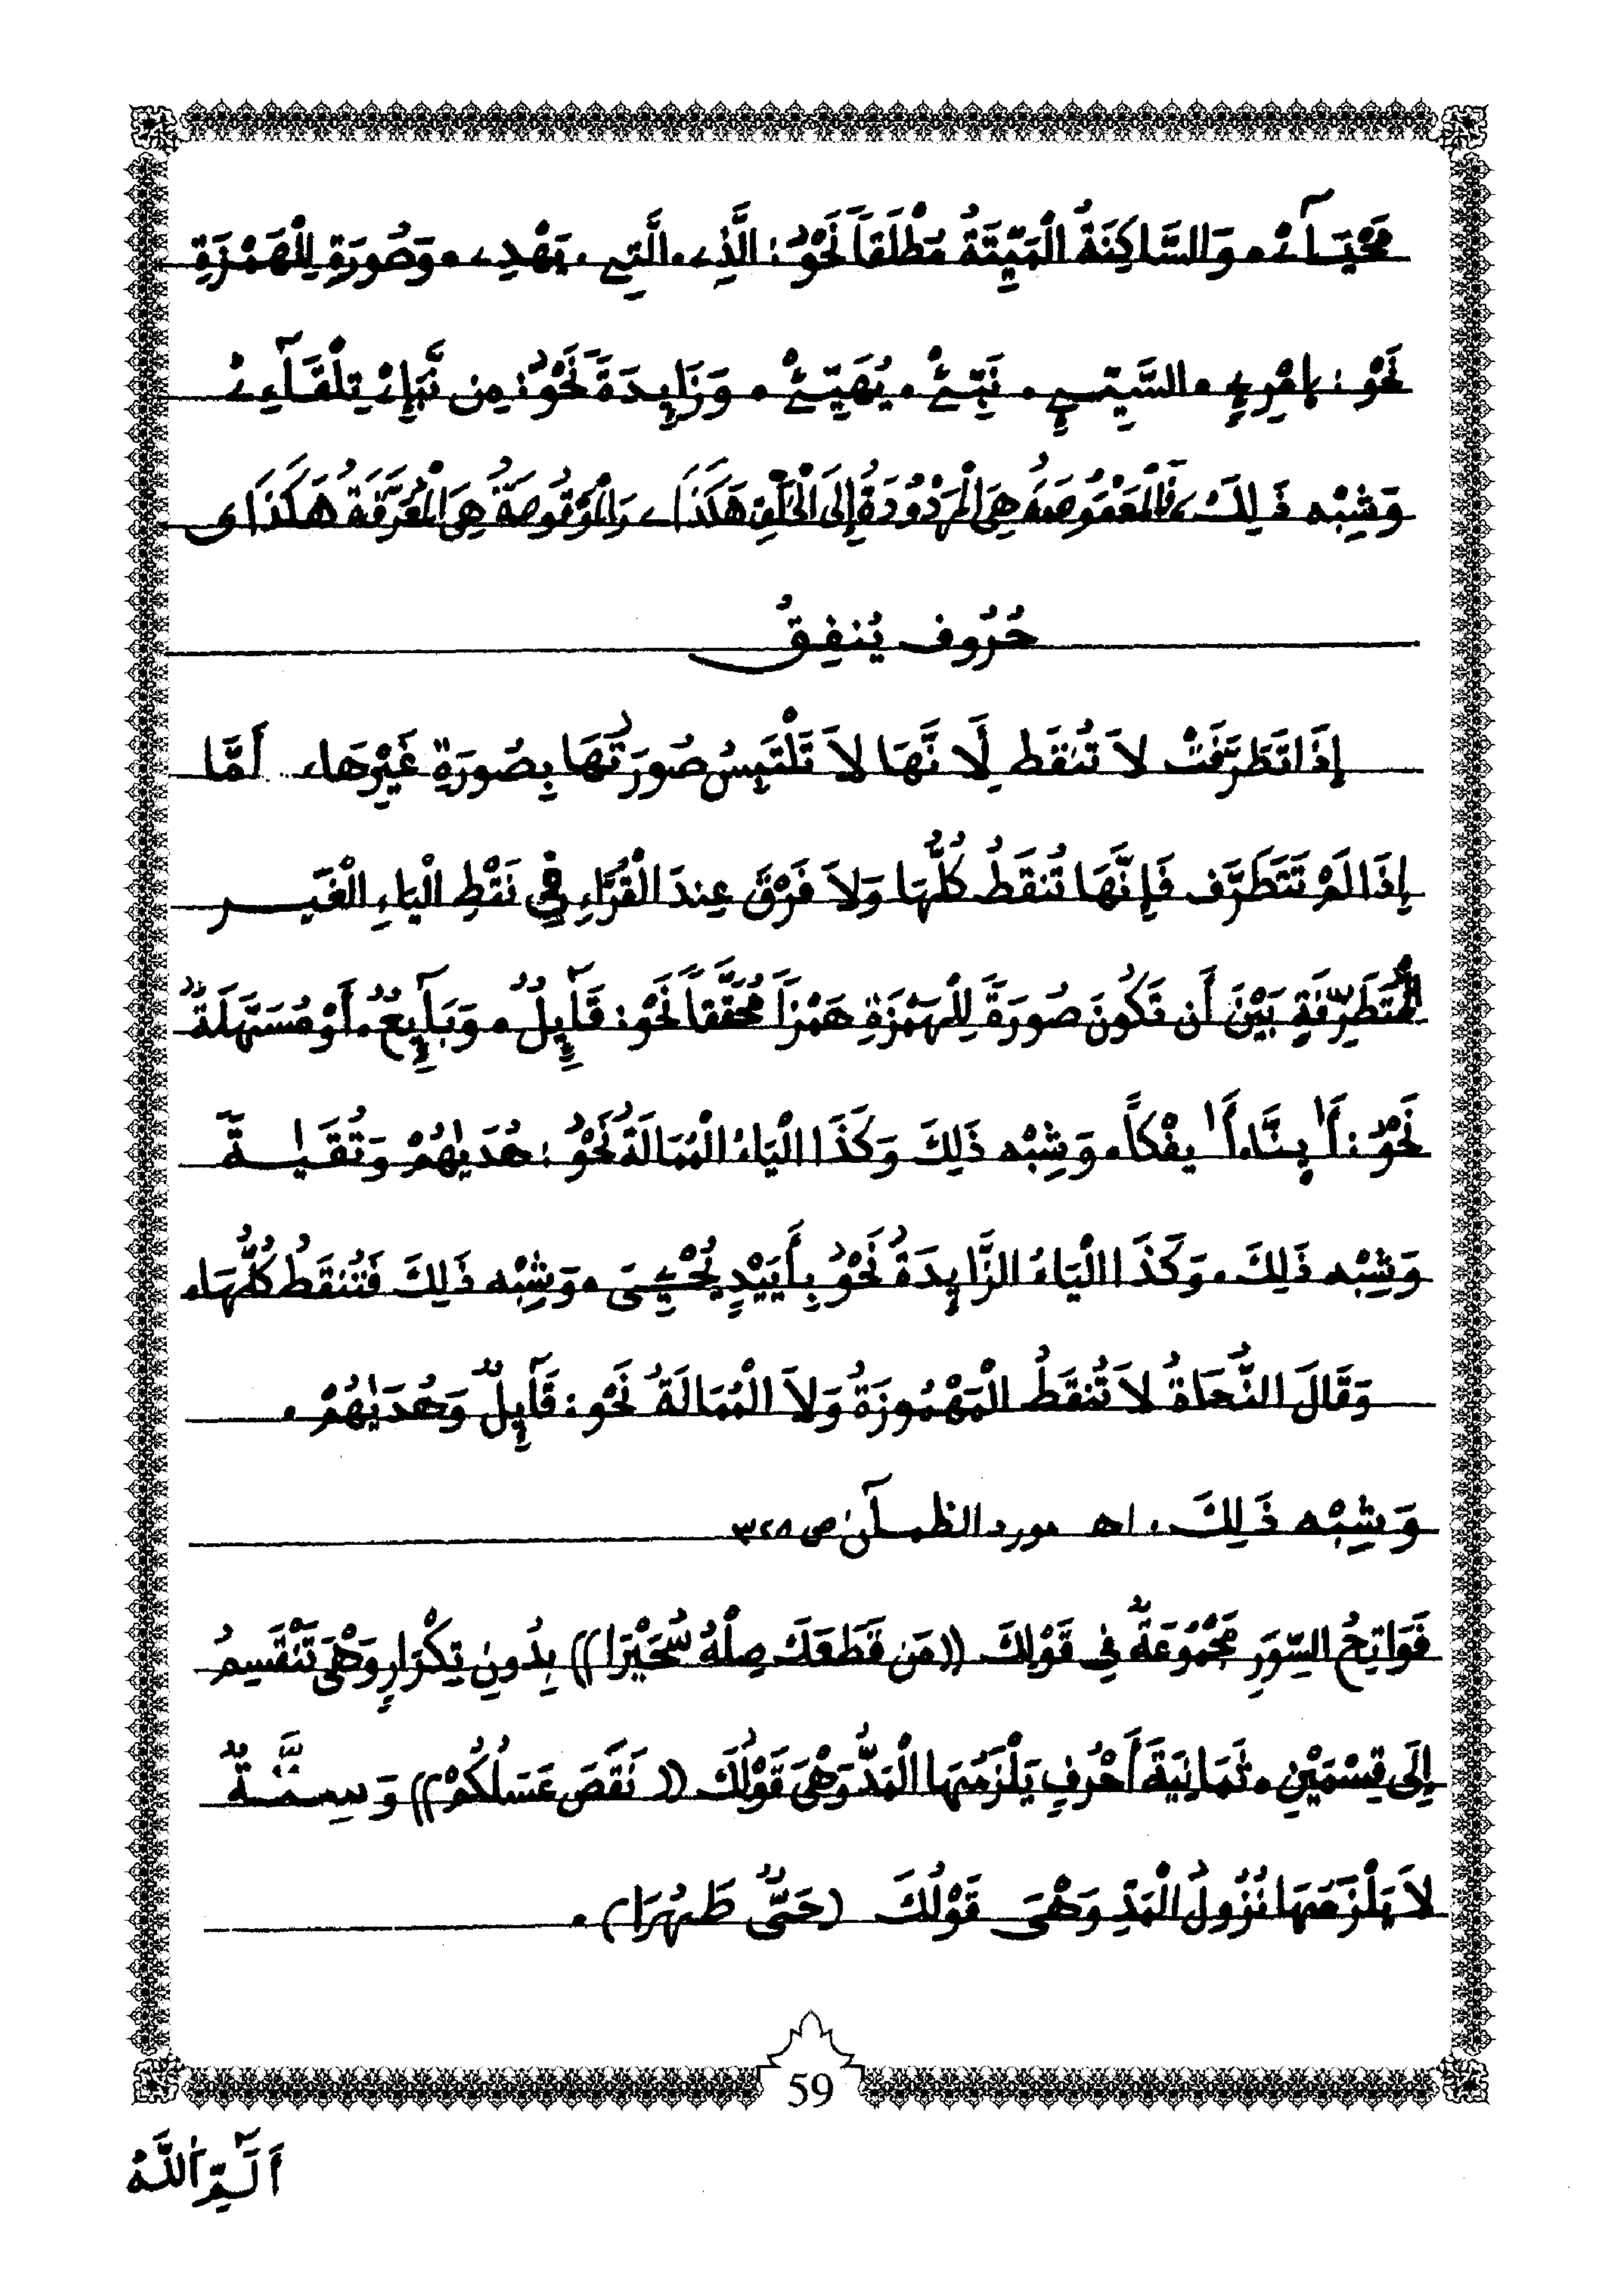 مَحْيَآءْ • وَالسَّاكِنَةُ الْمَيِّتَةُ مُطْلَقاً نَحْوُ: الَّذِے • الَّتِے • يَهْدِے • وَصُورَةٍ لِلْهَمْزَةِ
نَحْوُ: اِمْرِےٍ • السَّيِّےِ • نَبِّےْ • يُهَيِّےْ • وَزَايِدَةً نَحْوُ: مِن نَّبَإِےْ تِلْقَآءِےْ
وَشِبْهِ ذَلِكَ، فَالْمَعْقُوصَةُ هِيَ الْمَرْدُودَةُ إِلَى الْخَلْفِ هَكَذَا ے وَالْمَوْقُوصَةُ هِيَ الْمُعَرَّقَةُ هَكَذَا ى
حُرُوف يُنفِقُ
إِذَا تَطَرَّفَتْ لَا تُنقَط لِأَنَّهَا لَا تَلْتَبِسُ صُورَتُهَا بِصُورَةِ غَيْرِهَا، أَمَّا
إِذَا لَمْ تَتَطَرَّف فَإِنَّهَا تُنقَطُ كُلُّهَا وَلَا فَرْقَ عِندَ الْقُرَّاءِ فِي نَقْطِ الْيَاءِ الْغَيْرِ
الْمُتَطَرِّفَةِ بَيْنَ أَن تَكُونَ صُورَةً لِلْهَمْزَةِ هَمْزاً مُحَقَّقاً نَحْوُ: قَآئِلٌ • وَبَآئِعٌ • أَوْ مُسَهَّلَةً
نَحْوُ: أَ اٰينَّا • أَ اٰيفْكاً • وَشِبْهِ ذَلِكَ وَكَذَا الْيَاءُ الْمُمَالَةُ نَحْوُ: هُدَيٰهُمْ وَتُقَيٰةً
وَشِبْهِ ذَلِكَ • وَكَذَا الْيَاءُ الزَّايِدَةُ نَحْوُ بِأَيَيْدٍ يُحْيِيَ • وَشِبْهِ ذَلِكَ فَتُنقَطُ كُلُّهَا،
وَقَالَ النُّحَاةُ لَا تُنقَطُ الْمَهْمُوزَةُ وَلَا الْمُمَالَةُ نَحْوُ: قَآئِلٌ وَهُدَيٰهُمْ •
وَشِبْهِ ذَلِكَ • اهـ مورد الظمآن ص ٣٢٨
فَوَاتِحُ السِّوَرِ مَجْمُوعَةٌ فِي قَوْلِكَ ((مَن قَطَعَكَ صِلْهُ سُحَيْرَا)) بِدُونِ تِكْرَارٍ وَهْيَ تَنْقَسِمُ
إِلَى قِسْمَيْنِ • ثَمَانِيَةَ أَحْرُفٍ يَلْزَمُهَا الْمَدُّ وَهْيَ قَوْلُكَ ((نَقَصَ عَسَلُكُمْ)) وَسِتَّةٌ
لَا يَلْزَمُهَا نُزُولُ الْمَدِّ وَهْيَ قَوْلُكَ (حَيٌّ طَهُرَا) •
59
اَلَٓمِّٓ اَللَّهُ